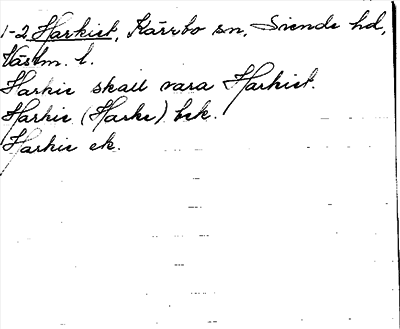 1-2 Harkist, Kärrbo sn, Siende hd,
Västm. l.
Harkie skall vara Harkist.
Harkie (Harke) bek.
Harkie ek.